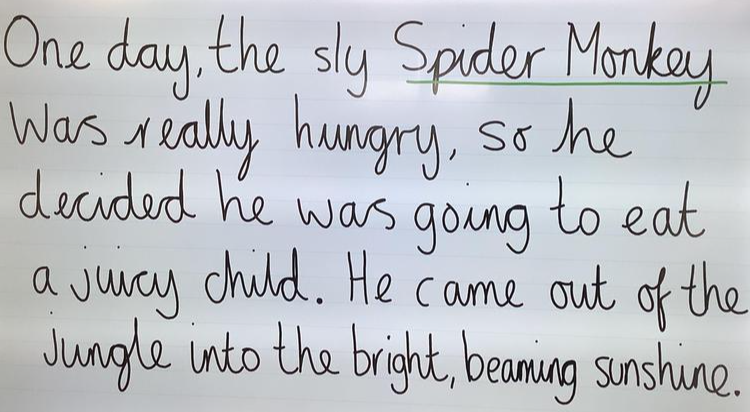 One day, the sly Spider Monkey
was really hungry, so he
decided he was going to eat
a juicy child. He came out of the
jungle into the bright, beaming sunshine.